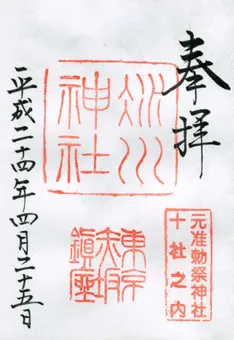 奉拝
氷川神社
元准勅祭神社
十社之内
東京赤坂鎮座
平成二十四年四月二十五日